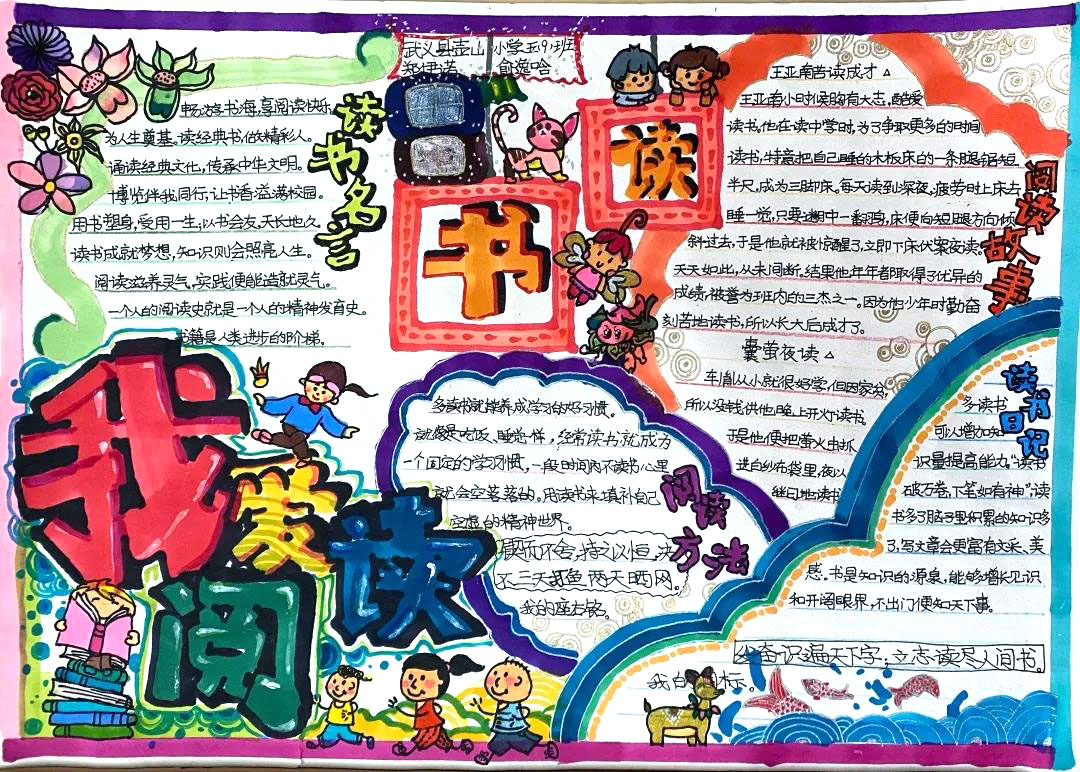 武义县壶山小学五(9)班
郑伊诺 俞逸晗
读书名言
畅游书海,享阅读快乐
为人生奠基。读经典书,做精彩人。
诵读经典文化,传承中华文明。
博览伴我同行,让书香溢满校园。
用书塑鸟,爱用一生,以书会友,天长地久。
读书成就梦想,知识则会照亮人生。
阅读滋养灵气,实践便能造就灵气。
一个人的阅读史就是一个人的精神发育史。
书籍是人类进步的阶梯。
读
书
我
爱
读
阅
阅读故事
王亚南苦读成才
王亚南小时候胸有大志,酷爱
读书,他在读中学时,为了争取更多的时间
读书,特意把自己睡的木板床的一条腿锯短
半尺,成为三脚床。每天读到深夜,疲劳时上床去
睡一觉,只要迷糊中一翻身,床便向短腿方向倾
斜过去,于是他就被惊醒了,立即下床伏案夜读。
天天如此,从未间断。结果他年年都取得了优异的
成绩,被誉为班内的三杰之一。因为他少年时勤奋
刻苦地读书,所以长大后成才了。
囊萤夜读
车胤从小就很好学,但因家贫,
所以没钱供他晚上开灯读书。
于是他便把萤火虫抓
进白纱布袋里,夜以
继日地读书
阅读方法
多读书就能养成学习的好习惯。
就像是吃饭、睡觉一样,经常读书就成为
一个固定的学习习惯,一段时间内不读书心里
就会空落落的。用读书来填补自己
空虚的精神世界。
锲而不舍,持之以恒,决
不三天打鱼两天晒网。
我的座右铭。
读书日记
多读书
可以增加知
识量提高能力,“读书
破万卷,下笔如有神”,读
书多了脑子里积累的知识多
了,写文章会更富有文采、美
感。书是知识的源泉,能够增长见识
和开阔眼界,不出门便知天下事。
发奋识遍天下字,立志读尽人间书。
我的目标。